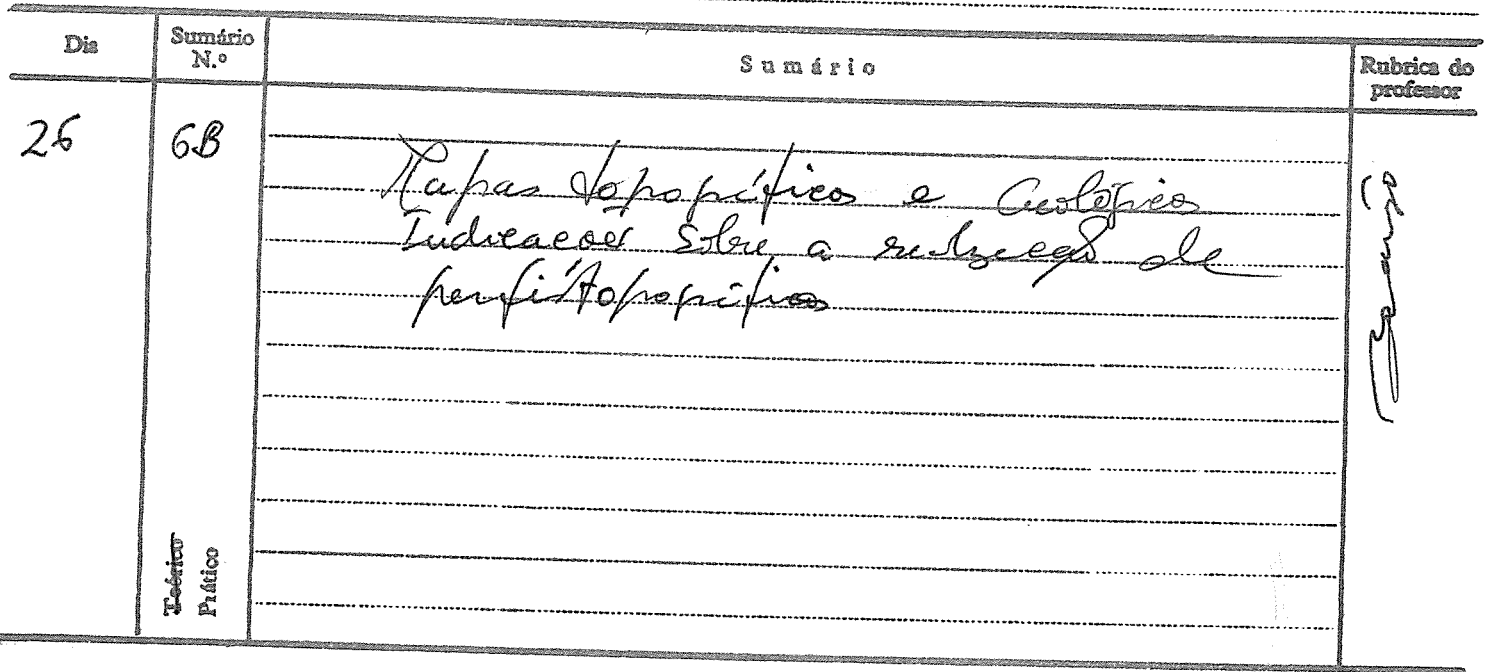 Dia
Sumário
N.º
Sumário
Rubrica do
professor
26
6B
Mapas topográficos e Geológicos
Indicações sobre a realização de
perfis topográficos
Teórico
Prático